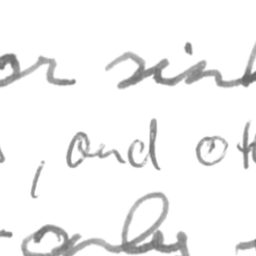 or sin
, and ot
only